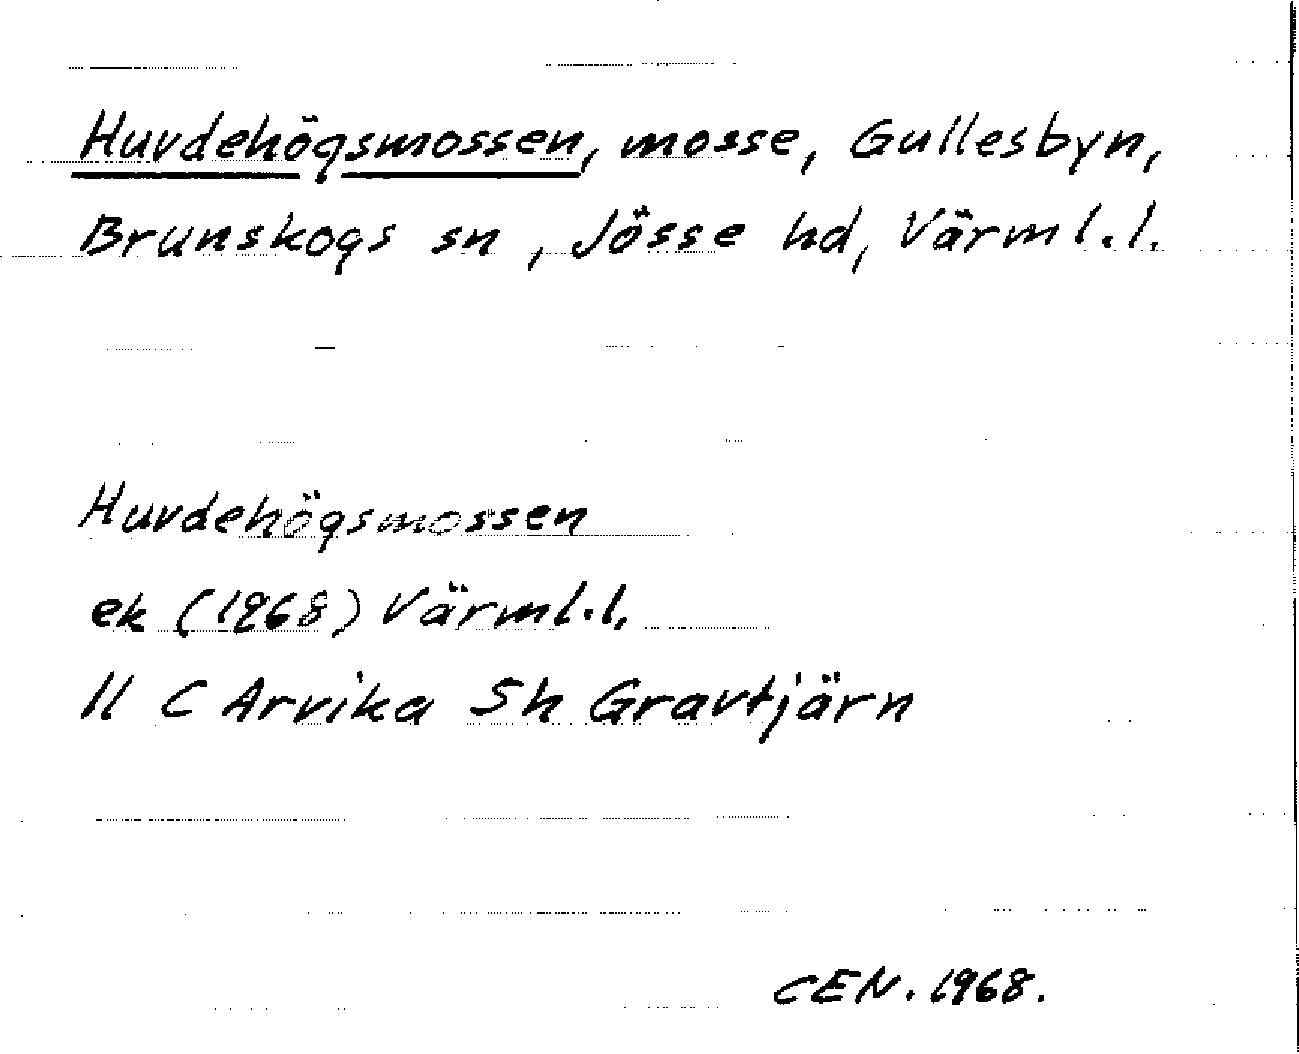 Huvdehögsmossen, mosse, Gullesbyn,
Brunskogs sn, Jösse hd, Värml.l.
Huvdehögsmossen
ek (1968) Värml.l.
11 C Arvika Sh Gravtjärn
CEN. 1968.